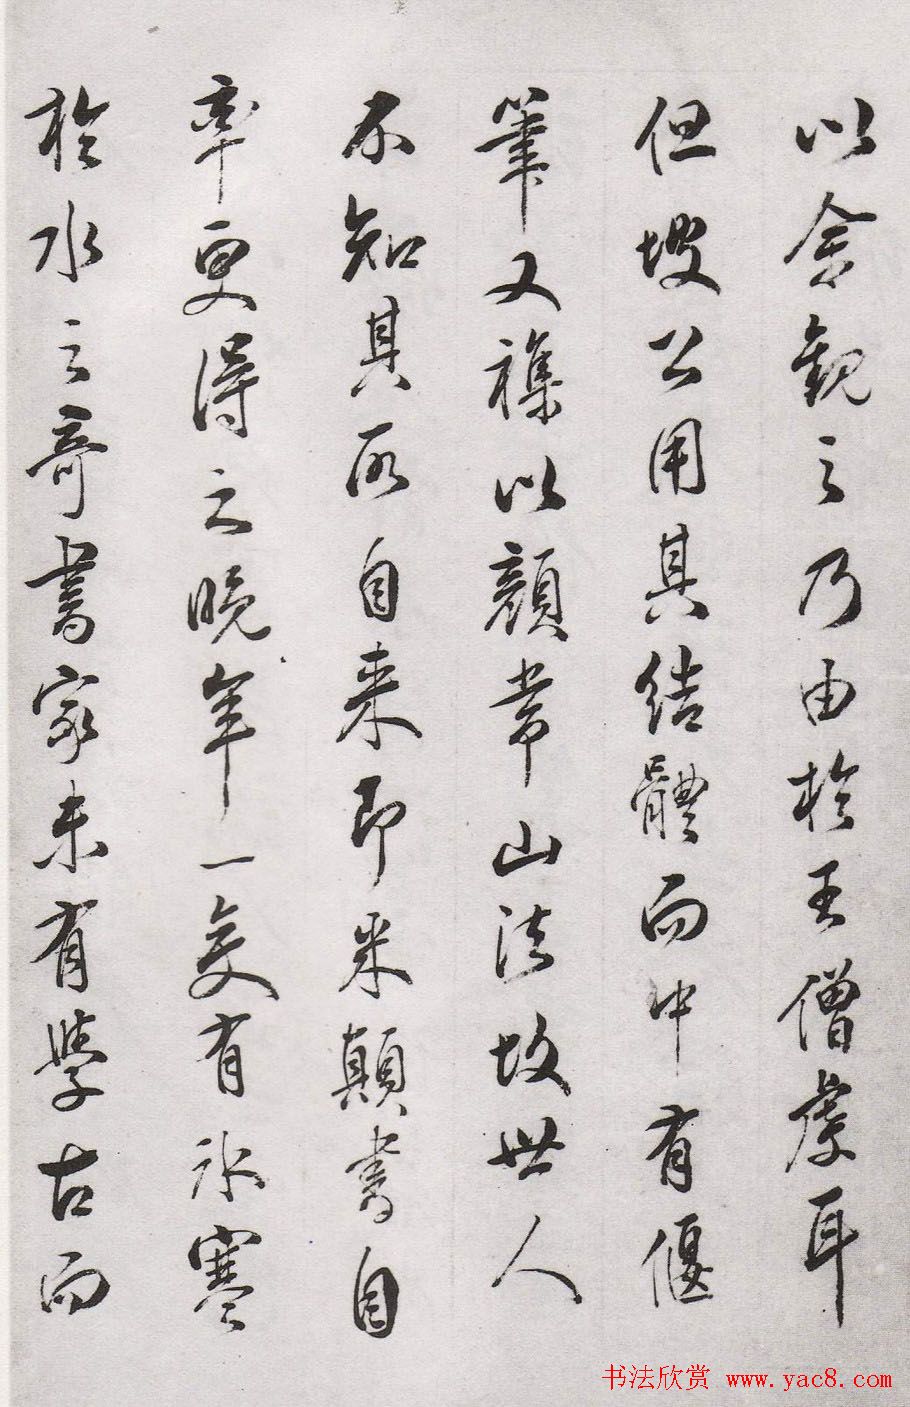 以余觀之乃由於王僧虔耳
但坡公用其結體而中有偃
筆又雜以顏常山法故世人
不知其所自来即米顛書自
率更得之晚年一變有氷寒
於水之奇書家未有學古而
书法欣赏 www.yac8.com